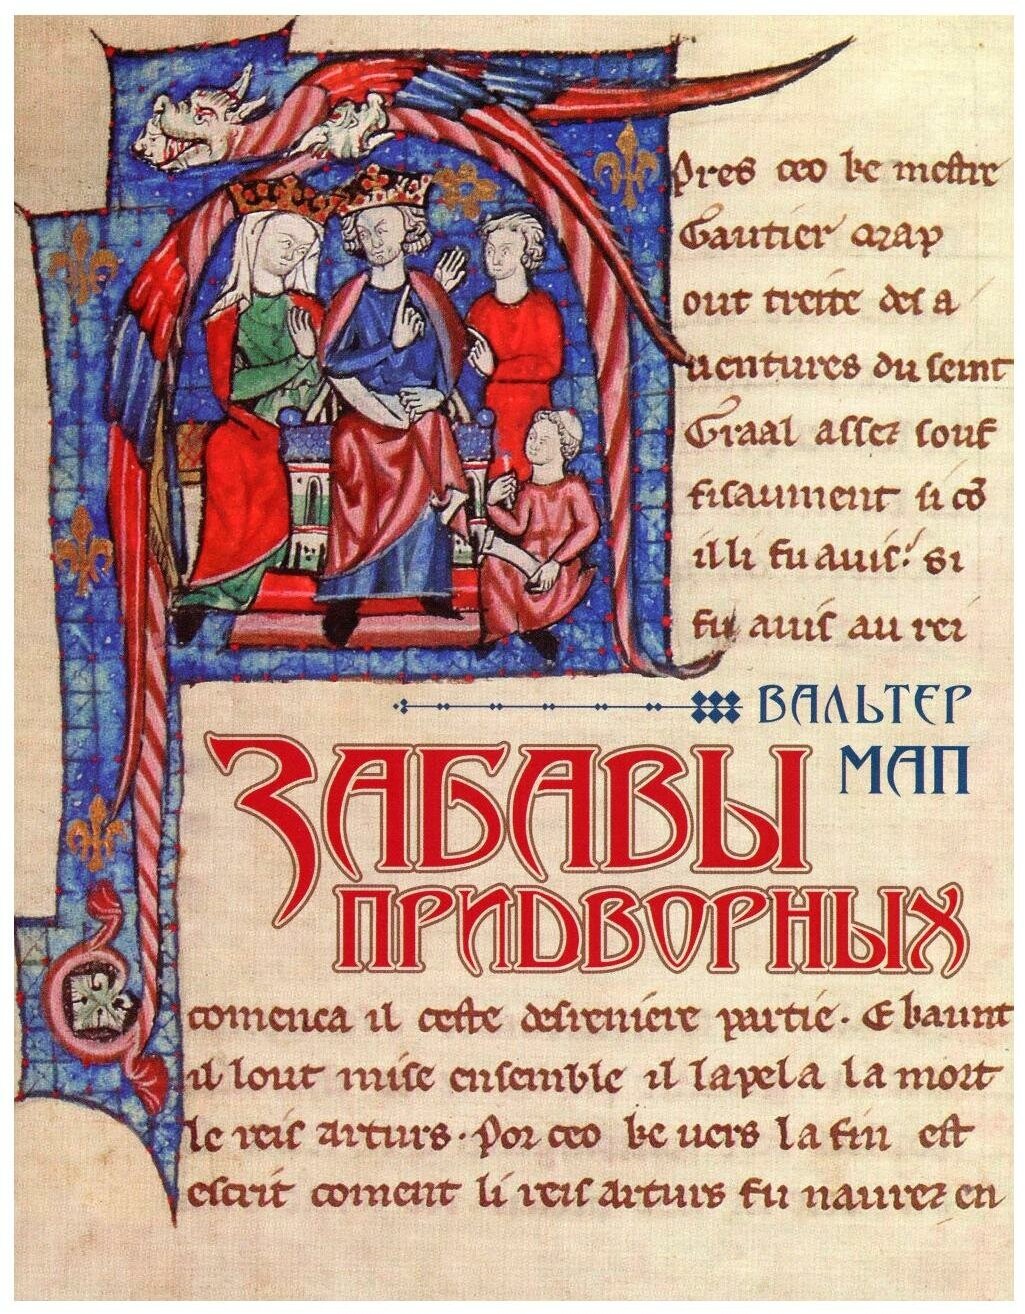 pres ceo ke mestre
Gautier map
out treite des a
uentures du seint
Graal assez souf
fisaument si cō
il li fu auis. Si
fu auis au rei
ВАЛЬТЕР
МАП
ЗАБАВЫ
ПРИДВОРНЫХ
comença il ceste desreniere partie. E kaunt
il lout mise ensemble il lapela la mort
le reis arturs. Por ceo ke uers la fin est
escrit coment li reis arturs fu naurez en